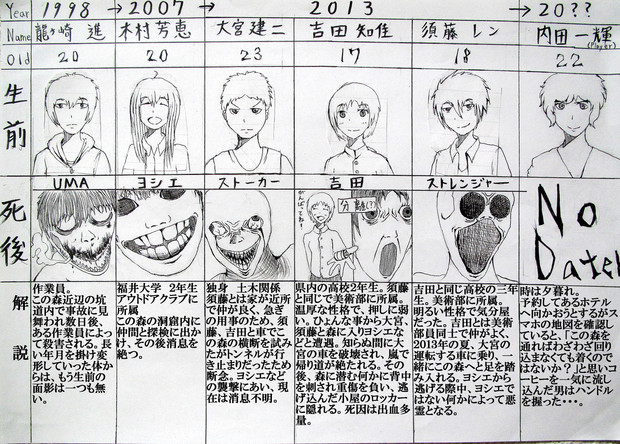 Year 1998 → 2007 → 2013 → 20??
Name 龍ヶ崎 進 木村芳恵 大宮建二 吉田知佳 須藤レン 内田一輝 (Player)
Old 20 20 23 17 18 22
生前
死後
UMA ヨシエ ストーカー 吉田 ストレンジャー
がんばってね!
分離(?)
No Data!!
解説
作業員。
この森近辺の坑
道内で事故に見
舞われ数日後、
ある作業員によっ
て殺害される。長
い年月を掛け変
形していった体か
らは、もう生前の
面影は一つも無
い。
福井大学 2年生
アウトドアクラブに
所属
この森の洞窟内に
仲間と探検に出か
け、その後消息を
絶つ。
独身 土木関係
須藤とは家が近所
で仲が良く、急ぎ
の用事のため、須
藤、吉田と車でこ
の森の横断を試み
たがトンネルが行
き止まりだったため
断念。ヨシエなど
の襲撃にあい、現
在は消息不明。
県内の高校2年生。須藤
と同じで美術部に所属。
温厚な性格で、押しに弱
い。ひょんな事から大宮、
須藤と森に入りヨシエな
どと遭遇。知らぬ間に大
宮の車を破壊され、嵐で
帰り道が絶たれる。その
後、森に潜む何かに背中
を刺され重傷を負い、逃
げ込んだ小屋のロッカー
に隠れる。死因は出血多
量。
吉田と同じ高校の三年
生。美術部に所属。
明るい性格で気分屋
だった。吉田とは美術
部員同士で仲がよく、
2013年の夏、大宮の
運転する車に乗り、一
緒にこの森へと足を踏
み入れる。ヨシエから
逃げる際中、ヨシエで
はない何かによって悪
霊となる。
時は夕暮れ。
予約してあるホテル
へ向かおうとするがス
マホの地図を確認し
ていると、「この森を
通ればわざわざ回り
込まなくても着くので
はないか?」と思いコ
ーヒーを一気に流し
込んだ男はハンドル
を握った・・・。